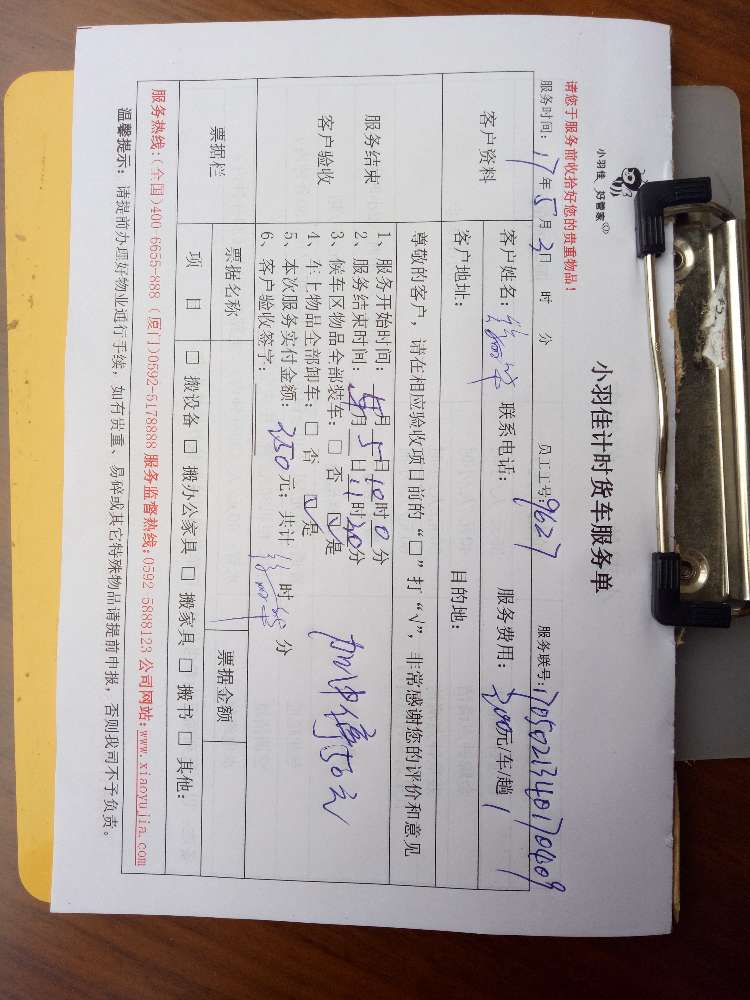 请您于服务前收拾好您的贵重物品！
小羽佳 好管家
小羽佳计时货车服务单
服务时间：17年5月3日 时 分 员工工号：9627 服务联号：
客户资料
客户姓名： 联系电话： 服务费用：300元/车/趟
客户地址： 目的地：
尊敬的客户，请在相应验收项目前的“□”打“√”，非常感谢您的评价和意见
服务结束
客户验收
1、服务开始时间： 月5日10时0分
2、服务结束时间： 月 日11时30分
3、候车区物品全部装车：□ 否 ☑ 是
4、车上物品全部卸车：□ 否 ☑ 是
5、本次服务实付金额：350元；共计 时 分
6、客户验收签字：
加中停50元
票据栏
票据名称 票据金额
项 目 □ 搬设备 □ 搬办公家具 □ 搬家具 □ 搬书 □ 其他：
服务热线：(全国)400-6655-888 (厦门)0592-5178888 服务监督热线：0592 5888123 公司网站：www.xiaoyujia.com
温馨提示：请提前办理好物业通行手续，如有贵重、易碎或其它特殊物品请提前申报，否则我司不予负责。